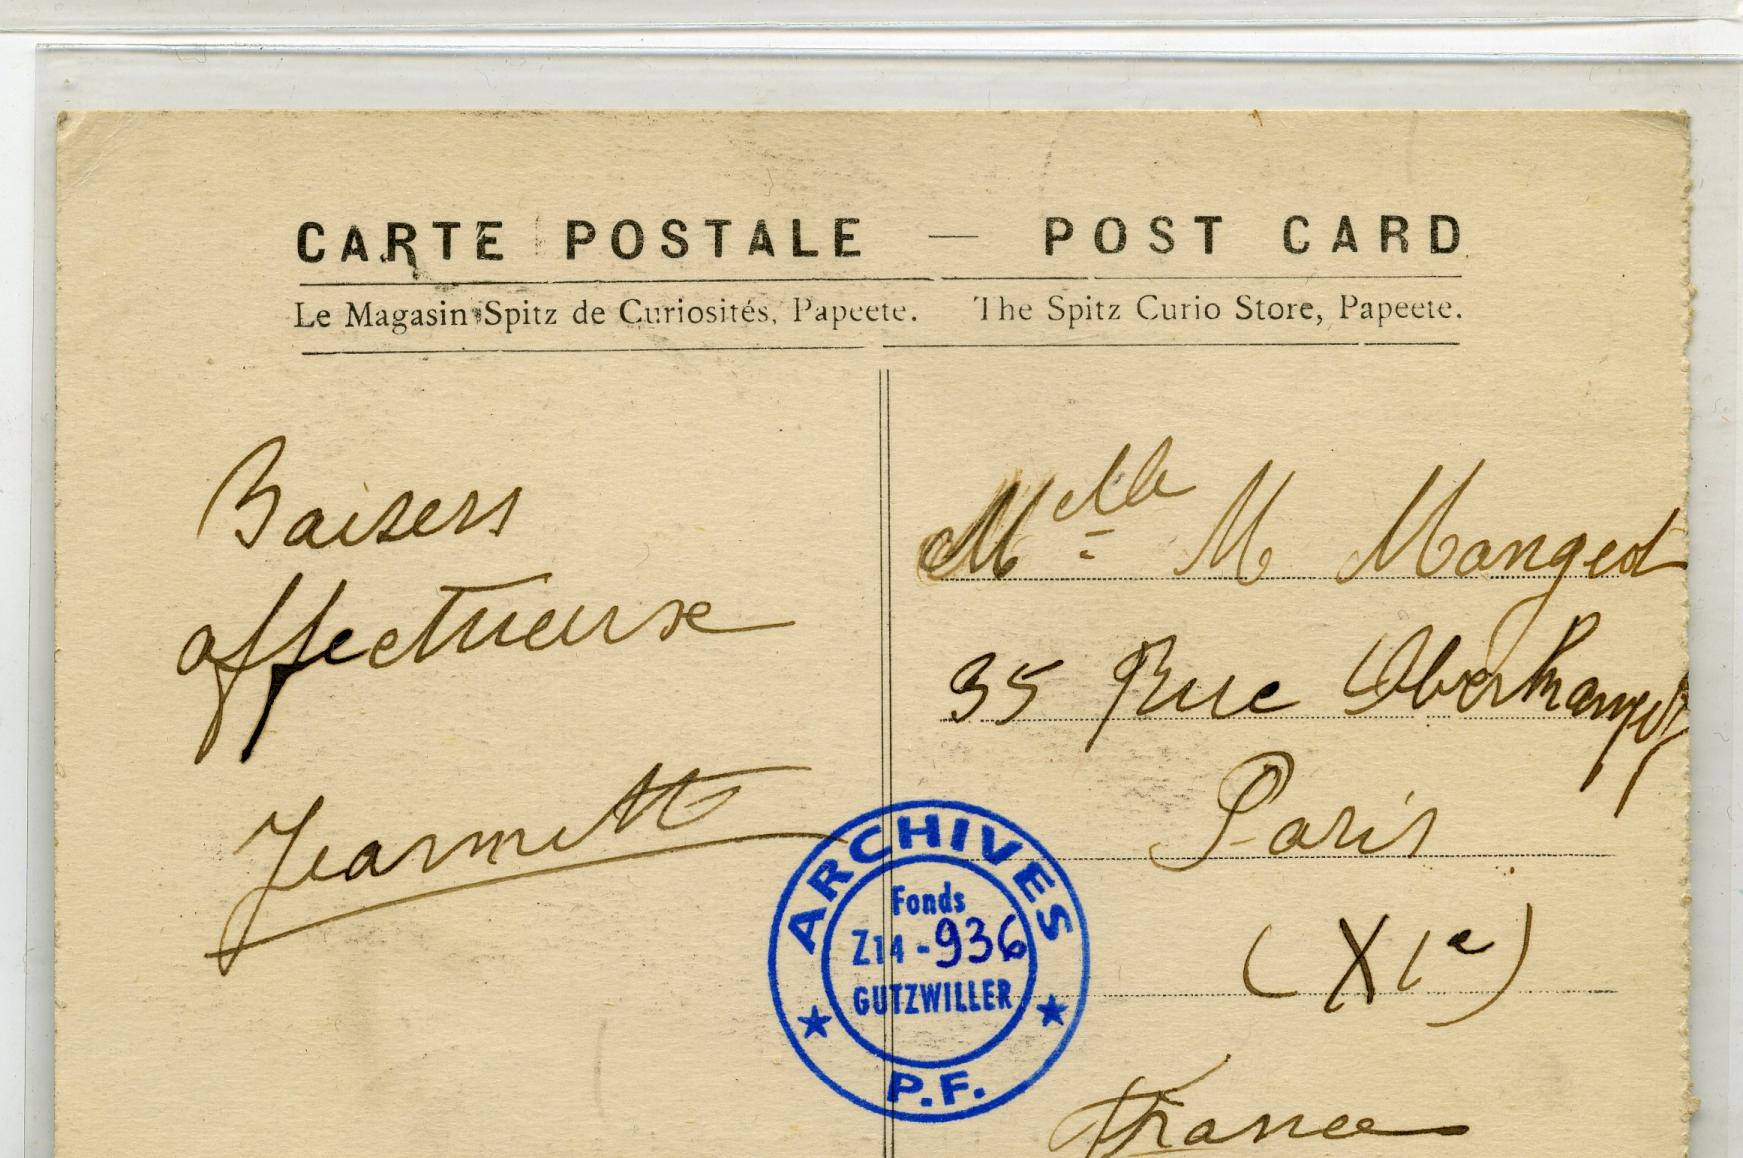 CARTE POSTALE — POST CARD
Le Magasin Spitz de Curiosités, Papeete. The Spitz Curio Store, Papeete.
Baisers
affectueuse
Jeannette
Melle M Mangeot
35 Rue Oberkampf
Paris
(XIe)
France
ARCHIVES
Fonds
Z14-936
GUTZWILLER
P.F.